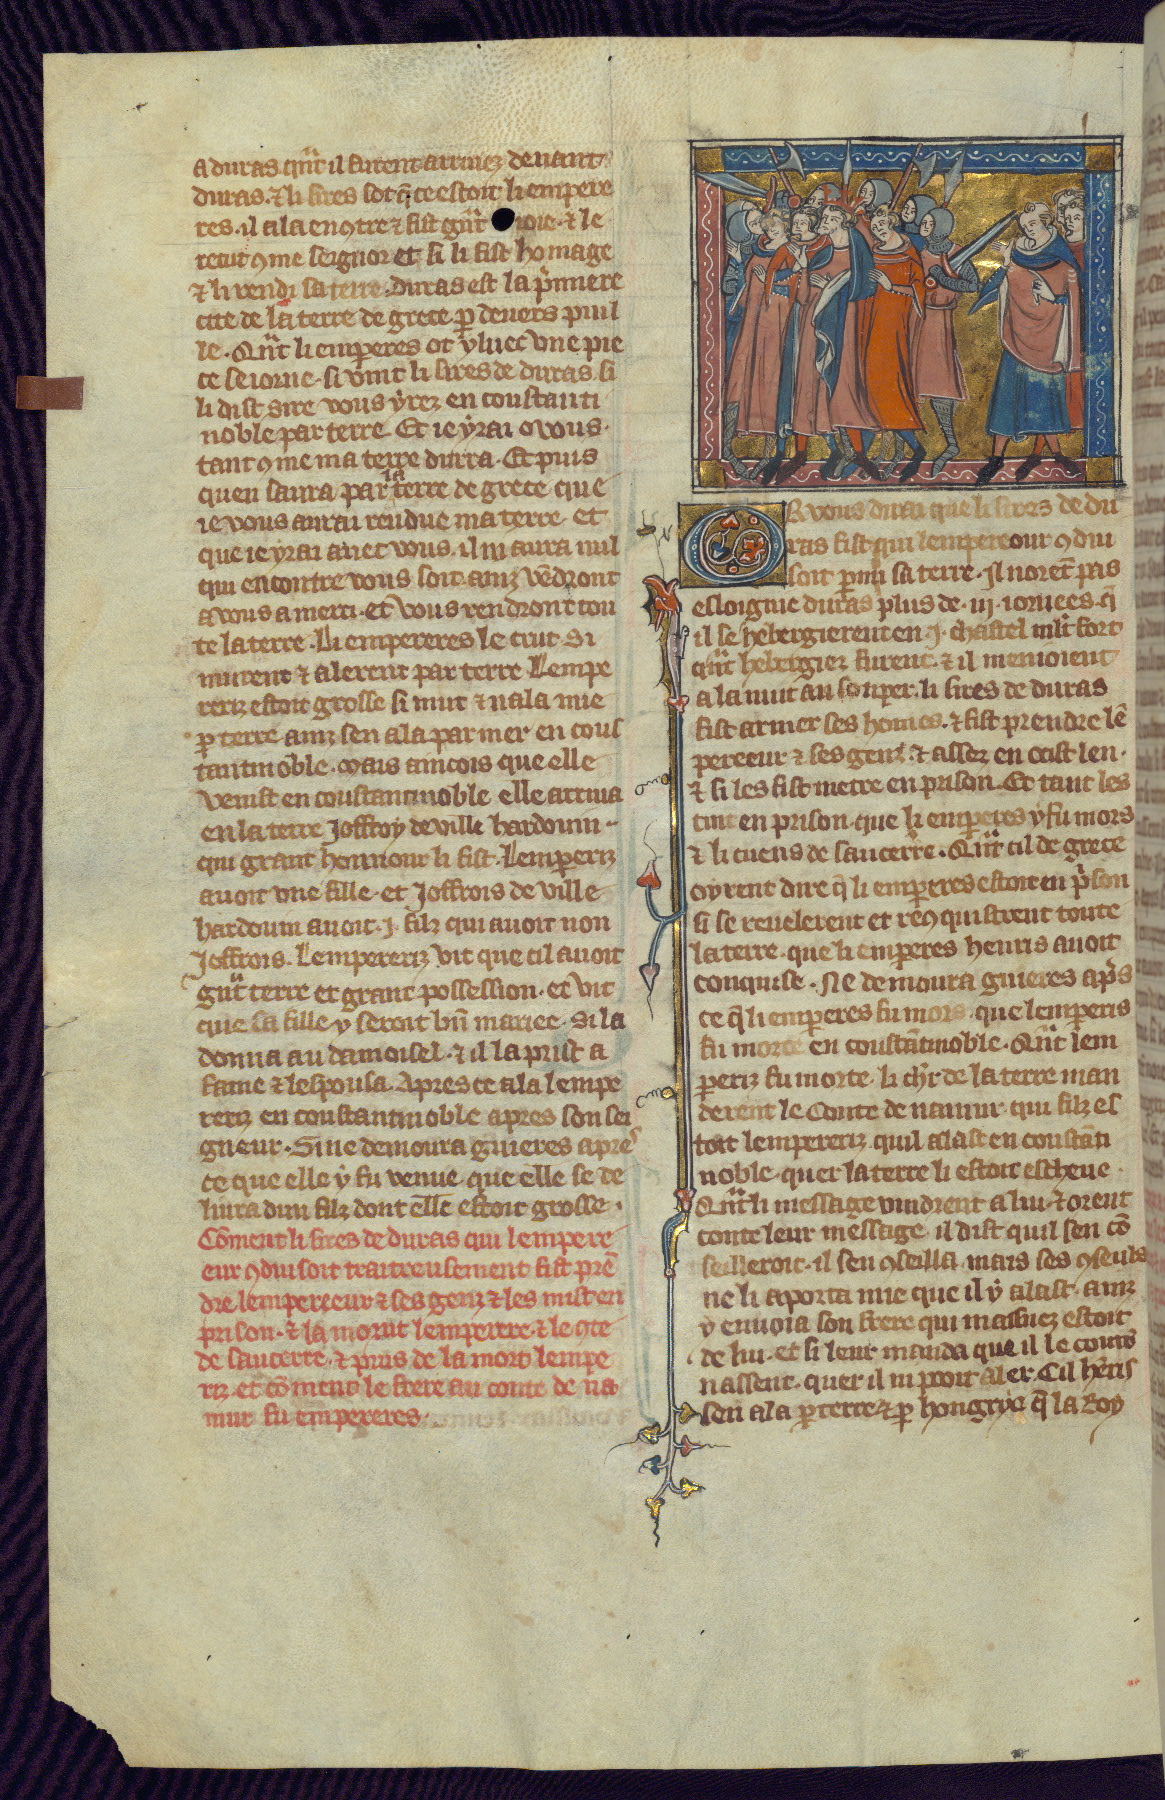 a duras. q̃nt il furent arrivez devant
duras. ⁊ li sires sot q̃ ce estoit li empere
res. il ala encontre ⁊ fist g̃nt ioie. ⁊ le
recut ꝯme seignor et si li fist homage
⁊ li rendi sa terre. Duras est la p̃miere
cite de la terre de grece ꝑ devers puil
le. Q̃nt li emperes ot yluec vne pie
ce seiorne. si vint li sires de duras. si
li dist sire vous yrez en coustanti
noble par terre. Et ie yrai o vous.
tant ꝯme ma terre durra. Et puis
quen saura par la terre de grece que
ie vous aurai rendue ma terre et
que ie yrai avec vous. il ni aura nul
qui encontre vous soit. ainz vẽdront
a vous a merci. et vous rendront tou
te la terre. Li empereres le crut. Si
murent ⁊ alerent par terre. Lempe
reriz estoit grosse si mut ⁊ nala mie
ꝑ terre ainz sen ala par mer en cous
tantinoble. Mais aincois que elle
venist en coustantinoble elle arriva
en la terre Joffroy de ville hardouin
qui grant honnour li fist. Lemperiz
avoit vne fille. et Joffrois de ville
hardouin avoit .j. filz qui avoit non
Joffrois. Lempereriz vit que cil avoit
g̃nt terre et grant possession. et vit
que sa fille y seroit bñ mariee. Si la
donna au damoisel. ⁊ il la prist a
fame ⁊ lespousa. Apres ce ala lempe
reriz en coustantinoble apres son sei
gneur. Si ne demoura guieres apres
ce que elle y fu venue. que elle se de
livra dun filz dont elle estoit grosse.
Cõment li sires de duras qui lempere
eur ꝯduisoit traitreusement fist prẽ
dre lempereeur ⁊ ses genz ⁊ les mist en
prison. ⁊ la morut lemperere ⁊ le ꝯte
de sancerre. ⁊ puis de la mort lempe
riz. et cõment le frere au conte de na
mur fu empereres.
Or vous dirai que li sires de du
ras fist qui lempereour ꝯdui
soit ꝑmi sa terre. Il norẽt pas
esloignie duras plus de .iij. iornees. q̃
il se hebergierent en .j. chastel ml̃t fort
q̃nt hebergiez furent. ⁊ il menioient
a la nuit au souper. li sires de duras
fist armer ses homes. ⁊ fist prendre lẽ
pereeur ⁊ ses genz. ⁊ assez en ocist len.
⁊ si les fist metre en prison. Et tant les
tint en prison. que li emperes y fu mors
⁊ li cuens de sancerre. Q̃nt cil de grece
oyrent dire q̃ li emperes estoit en p̃son
si se revelerent et reꝯquistrent toute
la terre. que li emperes henris avoit
conquise. Ne demoura guieres ap̃s
ce q̃ li emperes fu mors. que lemperis
fu morte en coustãtinoble. Q̃nt lem
periz fu morte. li chr̃ de la terre man
derent le Conte de namur. qui filz es
toit lempereriz. quil alast en coustãti
noble. quer la terre li estoit escheue.
Q̃nt li message vindrent a lui. ⁊ orent
conte leur message. il dist quil sen cõ
seilleroit. il sen ꝯseilla. mais ses ꝯseuls
ne li aporta mie que il y alast. ainz
y envoia son frere qui mainznez estoit
de lui. et si leur manda que il le couro
nassent. quer il ni pooit aler. Cil hẽris
sen ala ꝑ terre ⁊ ꝑ hongrye q̃ la Roy